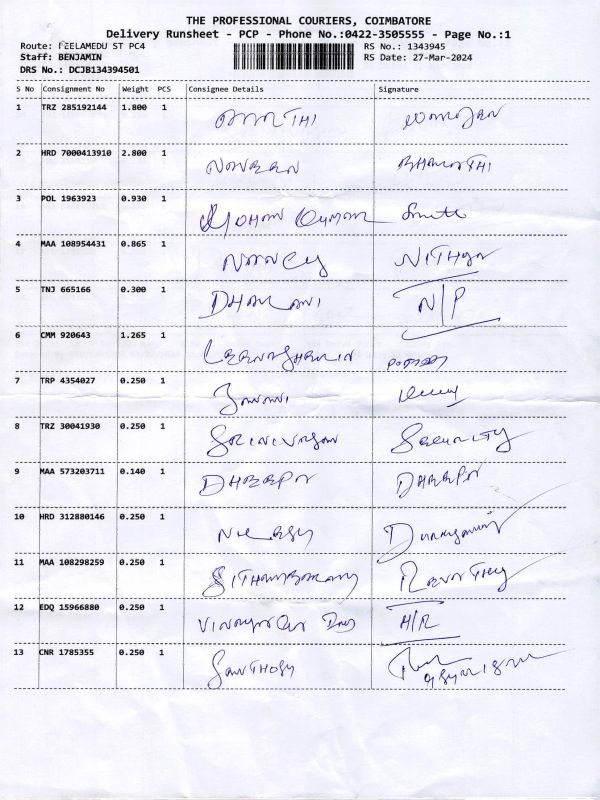 THE PROFESSIONAL COURIERS, COIMBATORE
Delivery Runsheet - PCP - Phone No.:0422-3505555 - Page No.:1
Route: PEELAMEDU ST PC4 RS No.: 1343945
Staff: BENJAMIN RS Date: 27-Mar-2024
DRS No.: DCJB134394501
S No Consignment No Weight PCS Consignee Details Signature
1 TRZ 285192144 1.800 1
2 HRD 7000413910 2.800 1 NAVEEN BHARATHI
3 POL 1963923 0.930 1 MOHAN KUMAR
4 MAA 108954431 0.865 1 NANCY NITHYA
5 TNJ 665166 0.300 1 DHARANI N/P
6 CMM 920643 1.265 1
7 TRP 4354027 0.250 1
8 TRZ 30041930 0.250 1 SRINIVASAN SECURITY
9 MAA 573203711 0.140 1 DHEEPA DHEEPA
10 HRD 312880146 0.250 1
11 MAA 108298259 0.250 1 REVATHY
12 EDQ 15966880 0.250 1 H/R
13 CNR 1785355 0.250 1 SANTHOSH